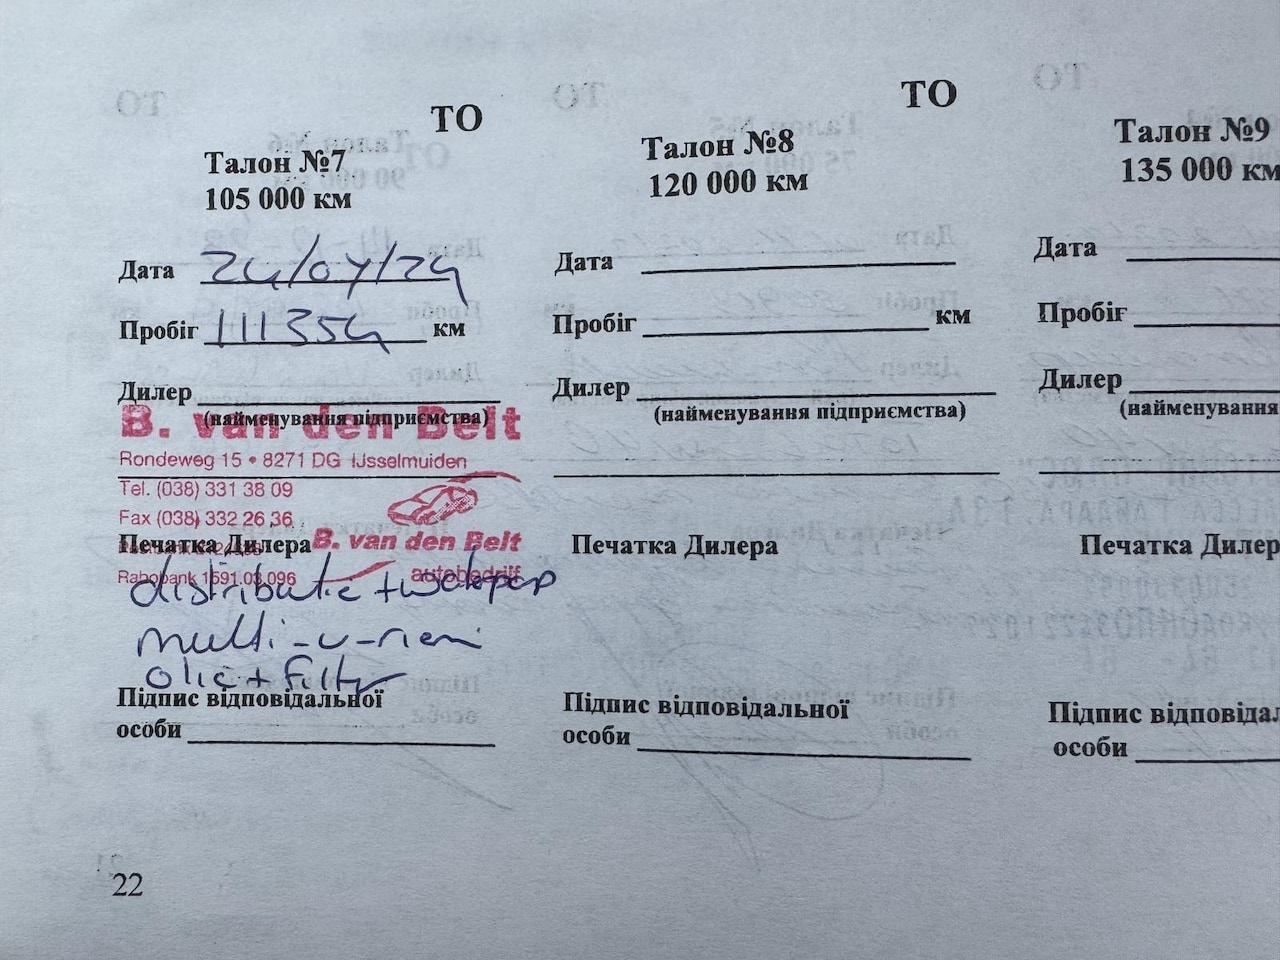 ТО
Талон №7
105 000 км
Дата 24/07/24
Пробіг 111354 км
Дилер
(найменування підприємства)
B. van den Belt
Rondeweg 15 • 8271 DG IJsselmuiden
Tel. (038) 331 38 09
Fax (038) 332 26 36
Печатка Дилера
B. van den Belt
autobedrijf
Rabobank 1591.03.096
distributie + waterpomp
multi-v-riem
olie + filter
Підпис відповідальної
особи
22
ТО
Талон №8
120 000 км
Дата
Пробіг км
Дилер
(найменування підприємства)
Печатка Дилера
Підпис відповідальної
особи
Талон №9
135 000 км
Дата
Пробіг
Дилер
(найменування
Печатка Дилер
Підпис відповідал
особи